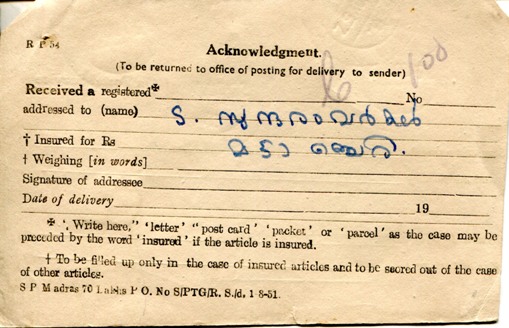 R P 54
Acknowledgment.
(To be returned to office of posting for delivery to sender)
Received a registered* No 100
addressed to (name) ട. സുന്ദരംവർകൾ
† Insured for Rs മട്ടാഞ്ചെരി.
† Weighing [in words]
Signature of addressee
Date of delivery 19
* ', Write here," 'letter' "post card' 'packet' or 'parcel' as the case may be
preceded by the word 'insured' if the article is insured.
† To be filled up only in the case of insured articles and to be scored out of the case
of other articles.
S P Madras 70 Lakhs P O. No S/PTG/R. S./d, 1-8-51.